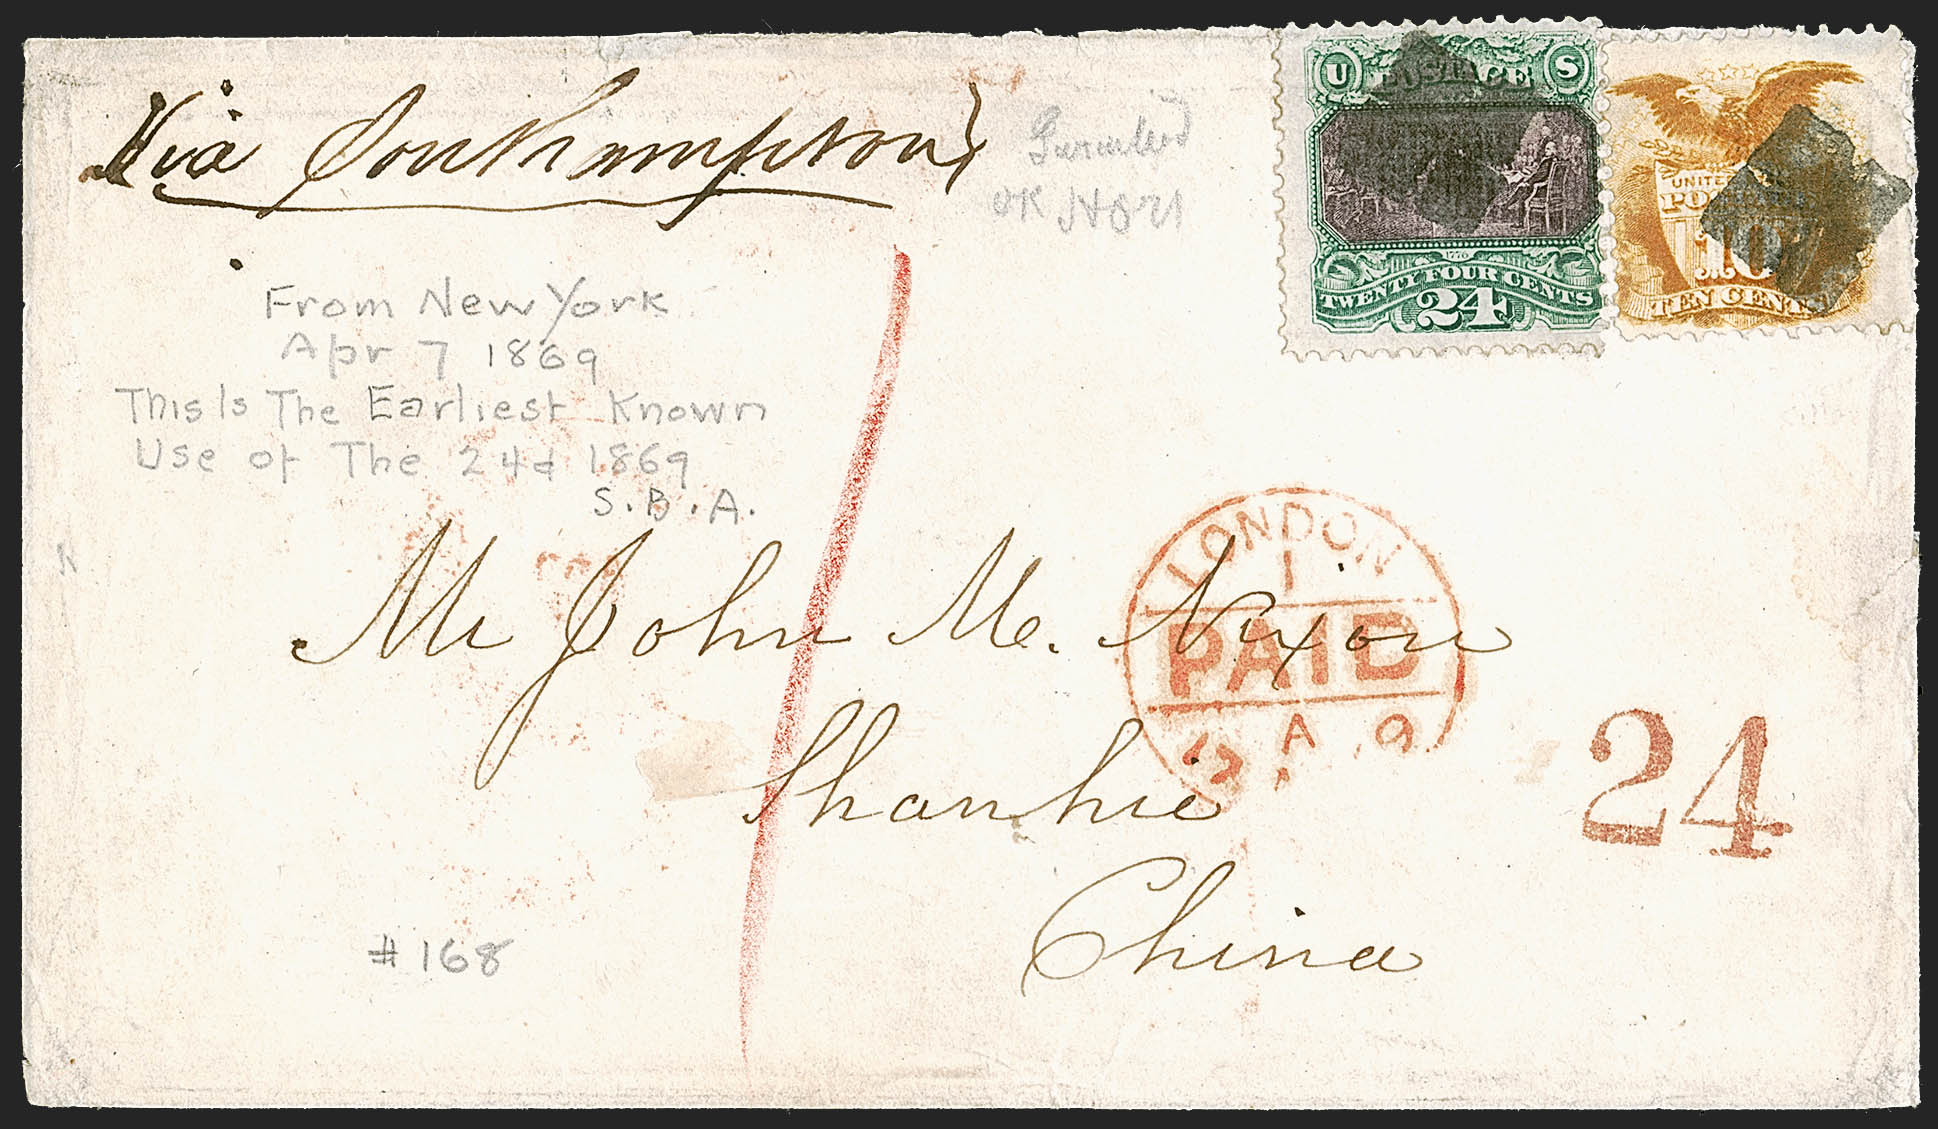 Via Southampton
OK
U POSTAGE S
1776
TWENTY FOUR CENTS
24
UNITED
POSTAGE
10
TEN CENTS
From New York
Apr 7 1869
This Is The Earliest Known
Use of The 24¢ 1869
S.B.A.
LONDON
1
PAID
A 9
Mr John M. Nixon
Shanhie
China
24
#168